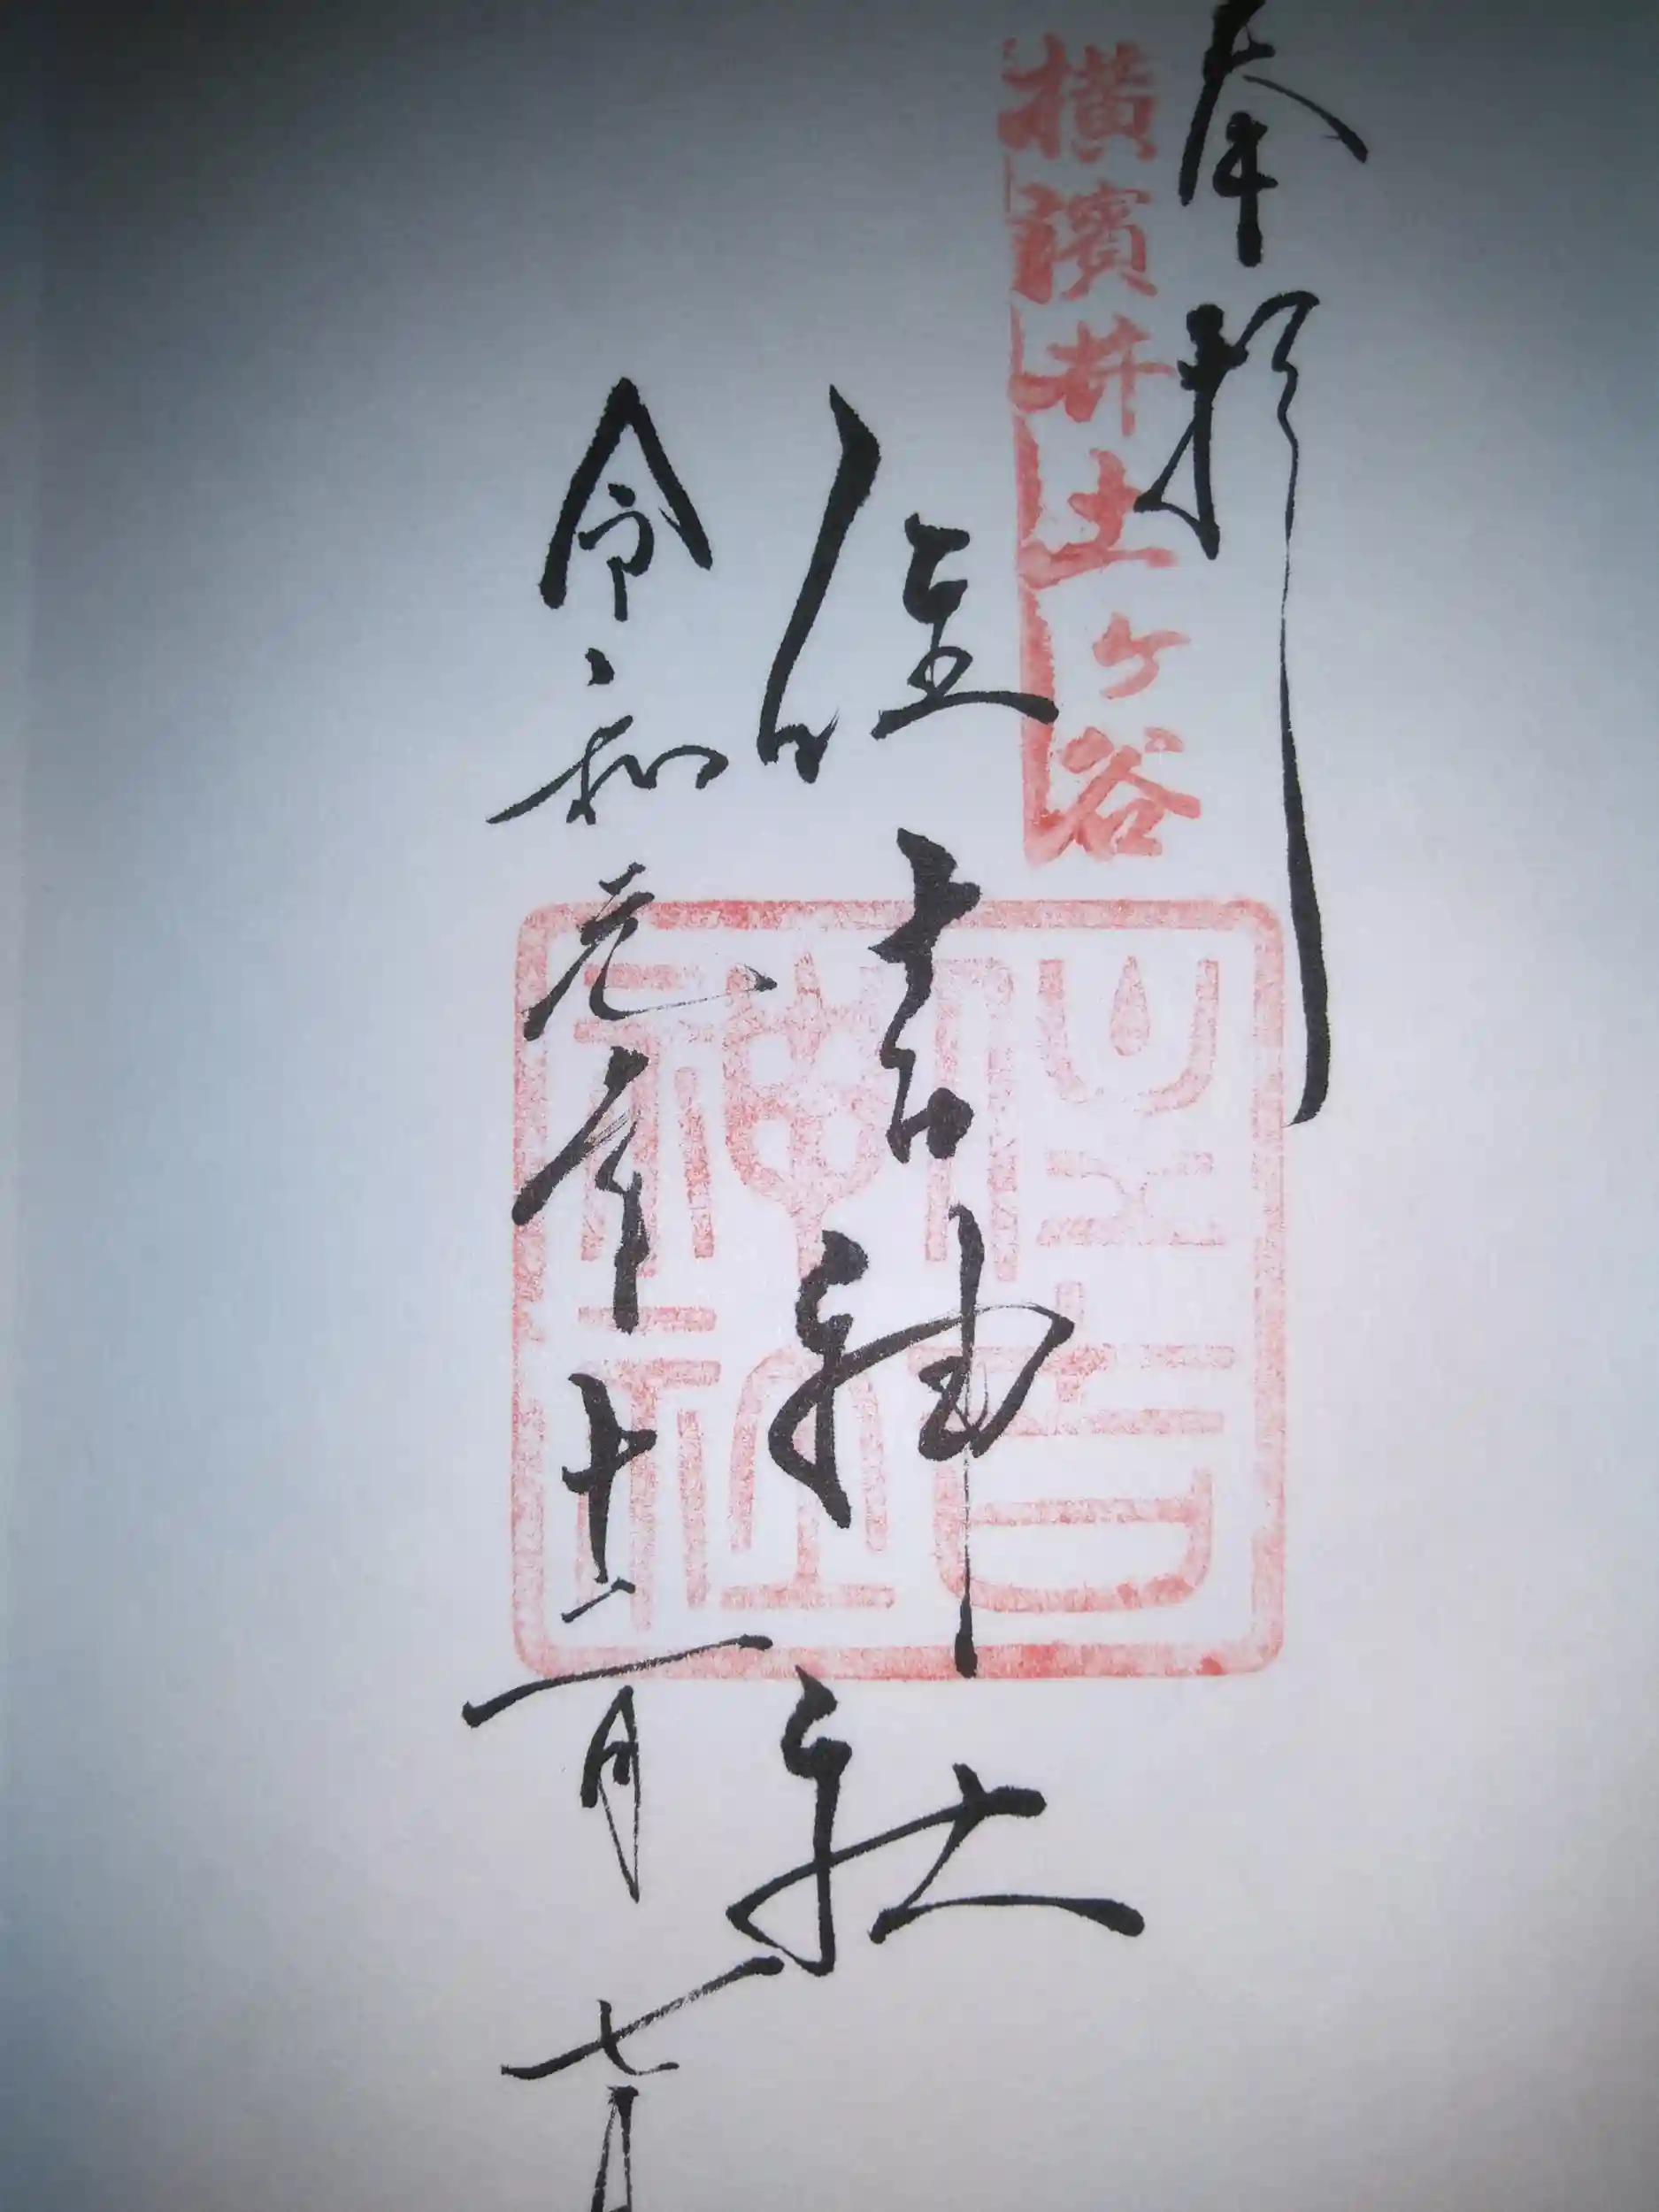 奉拝
横濱井土ヶ谷
住吉神社
住吉神社
令和元年十二月七日